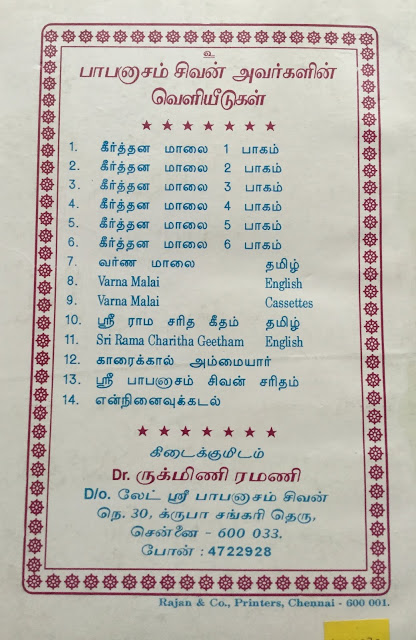 உ
பாபனாசம் சிவன் அவர்களின்
வெளியீடுகள்
★ ★ ★ ★ ★ ★ ★
1. கீர்த்தன மாலை 1 பாகம்
2. கீர்த்தன மாலை 2 பாகம்
3. கீர்த்தன மாலை 3 பாகம்
4. கீர்த்தன மாலை 4 பாகம்
5. கீர்த்தன மாலை 5 பாகம்
6. கீர்த்தன மாலை 6 பாகம்
7. வர்ண மாலை தமிழ்
8. Varna Malai English
9. Varna Malai Cassettes
10. ஸ்ரீ ராம சரித கீதம் தமிழ்
11. Sri Rama Charitha Geetham English
12. காரைக்கால் அம்மையார்
13. ஸ்ரீ பாபனாசம் சிவன் சரிதம்
14. என்நினைவுக்கடல்
★ ★ ★ ★ ★ ★ ★
கிடைக்குமிடம்
Dr. ருக்மிணி ரமணி
D/o. லேட் ஸ்ரீ பாபனாசம் சிவன்
நெ. 30, க்ருபா சங்கரி தெரு,
சென்னை - 600 033.
போன் : 4722928
Rajan & Co., Printers, Chennai - 600 001.